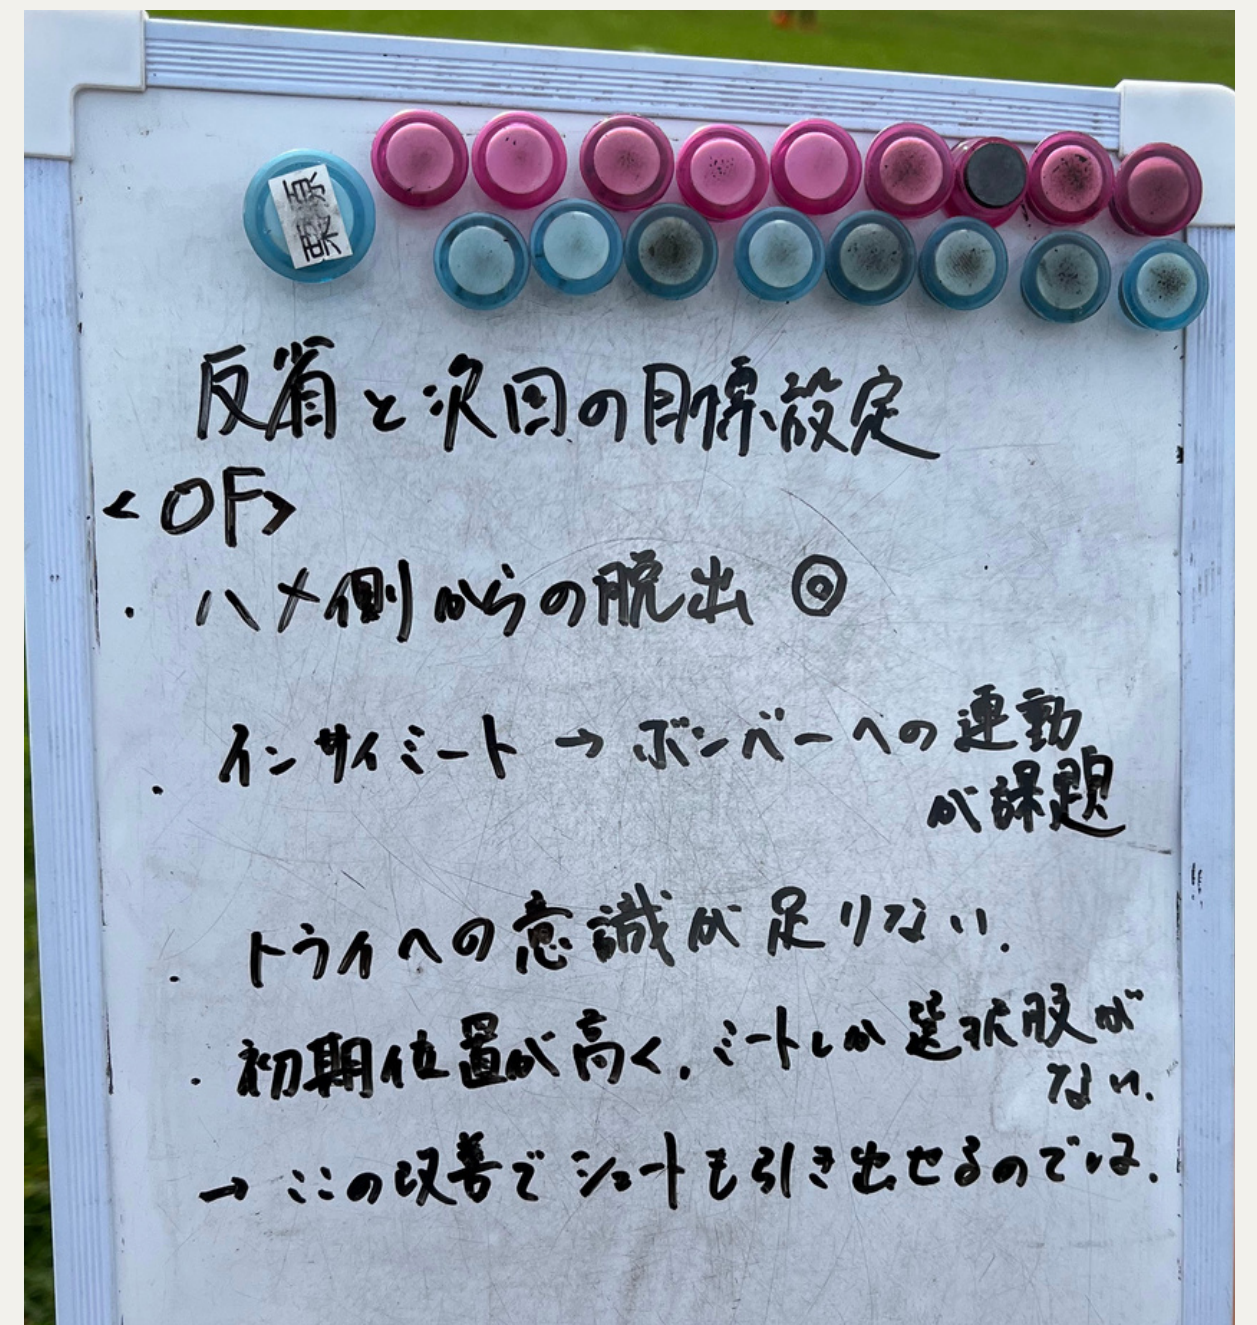 反省と次回の目標設定
<OF>
・ハメ側からの脱出 ◎
・インサイミート → ボンベーへの連動
が課題
・トライへの意識が足りない.
・初期位置が高く、ミートしか選択肢が
ない.
→ ここの改善でシュートも引き出せるのでは.